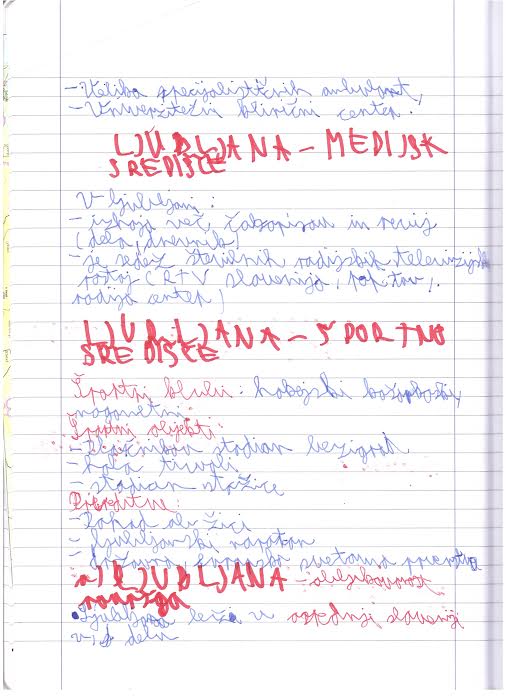 - Velika specijalističnih ambulant,
- Univerzitetni klinični center.
LJUBLJANA - MEDIJSK
SREDIŠČE
V ljubljani:
- izhaja več, časopisov in revij
(dela, dnevnik)
- je sedež številnih radijskih televizijsk
postaj (RTV slovenija, pop tov,
radijo center)
LJUBLJANA - ŠPORTNO
SREDIŠČE
Športni klubi: hokejski košarkaški,
nogometni
Športni objekti:
- stadian bezigrat
- hala tivoli
- stadian stožice
Prireditve:
- Pohod ob žici
- ljubljanski maraton
- evropska svetovna prvenstva
a) LJUBLJANA -
Ljubljana leži u osrednji sloveniji
v delu